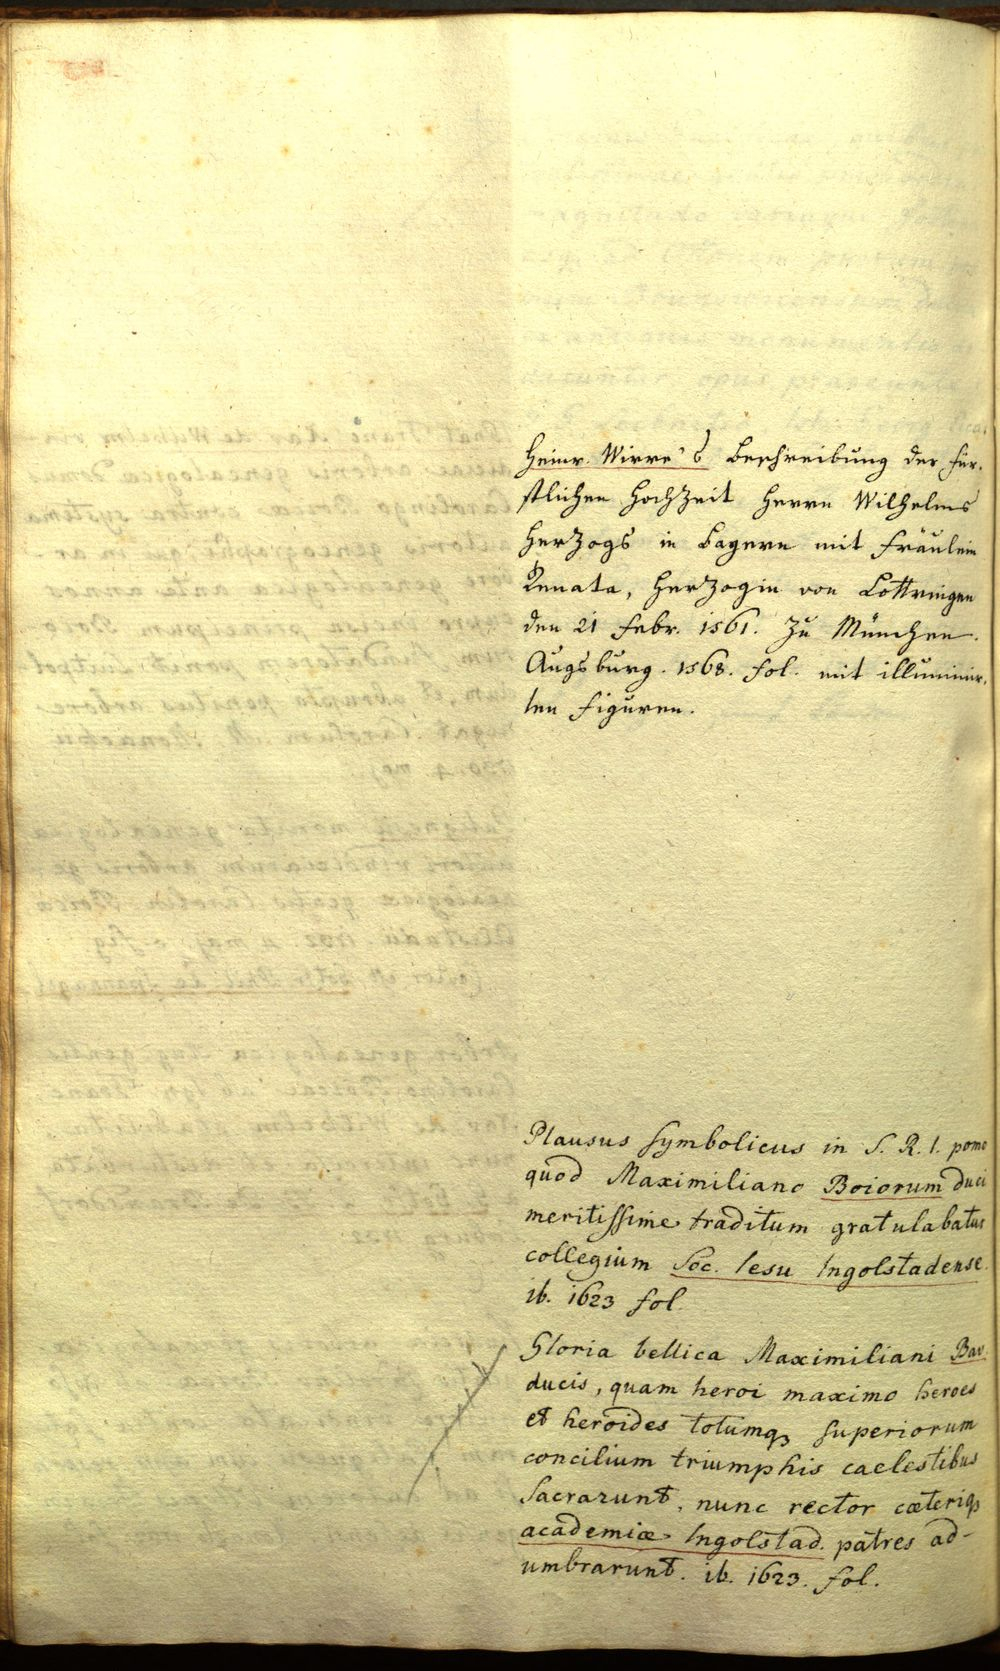 Heinr. Wirre's Beschreibung der für-
stlichen Hochzeit Herrn Wilhelms
Herzogs in Bayern mit Fräulein
Renata, Herzogin von Lottringen
den 21 Febr. 1561. zu München.
Augsburg. 1568. fol. mit illuminir-
ten Figuren.
Plausus symbolicus in S. R. I. pomo
quod Maximiliano Boiorum duci
meritissime traditum gratulabatur
collegium Soc. Iesu Ingolstadense.
ib. 1623 fol.
Gloria bellica Maximiliani Bav.
ducis, quam heroi maximo heroes
et heroides totumq3 superiorum
concilium triumphis caelestibus
sacrarunt, nunc rector cæteriq3
academiæ Ingolstad. patres ad-
umbrarunt. ib. 1623. fol.